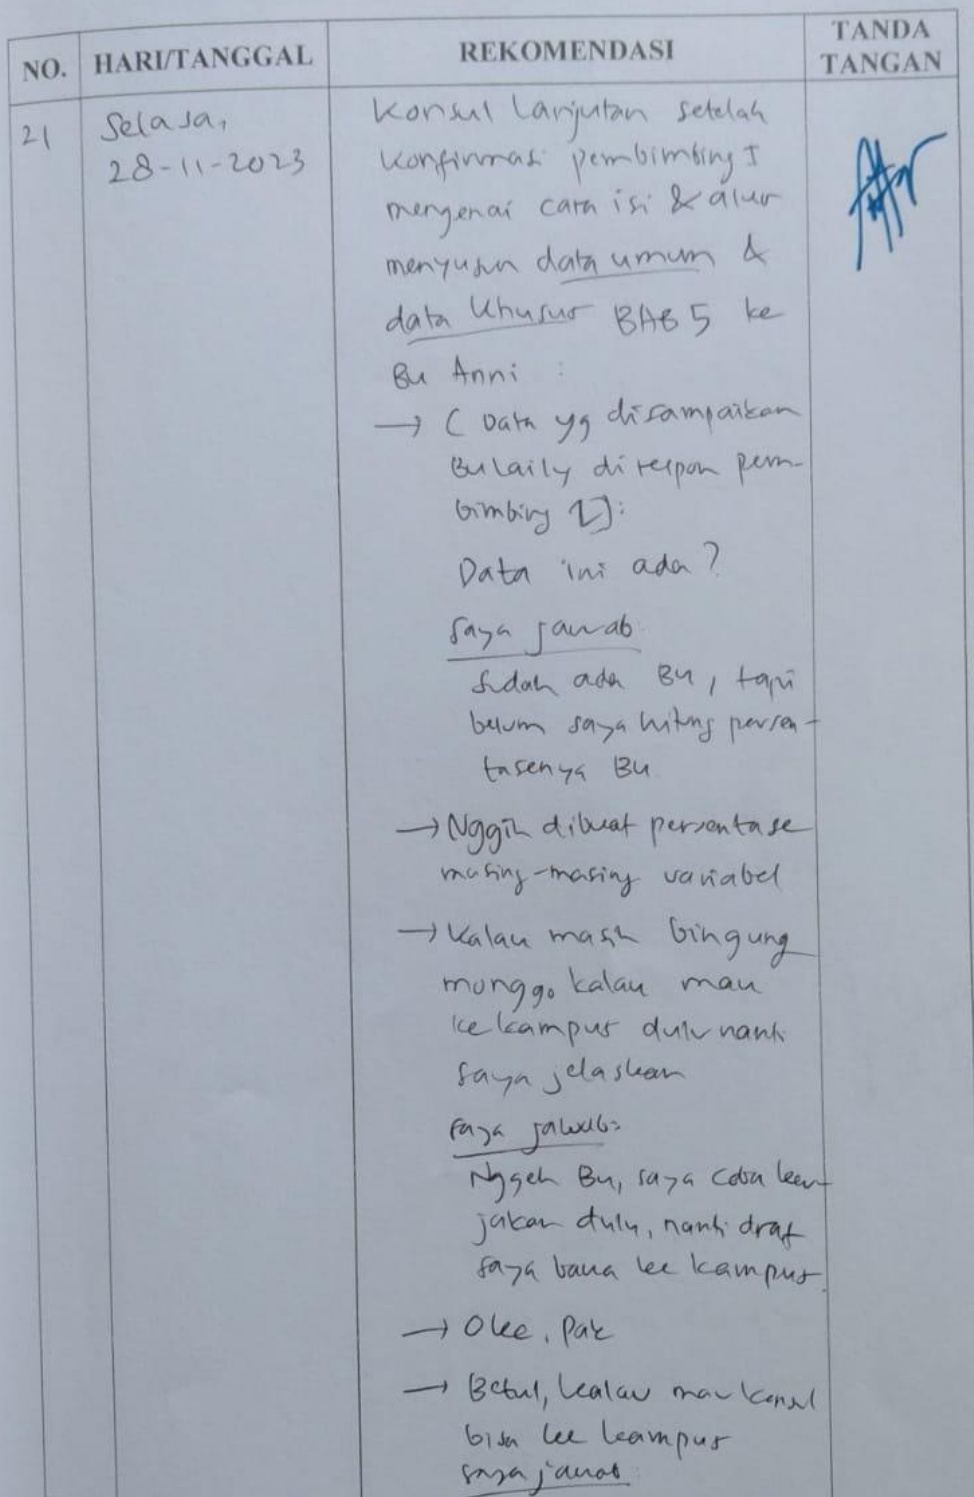 NO. HARI/TANGGAL REKOMENDASI TANDA TANGAN
21 Selasa, 28-11-2023
Konsul Lanjutan setelah
konfirmasi pembimbing I
mengenai cara isi & alur
menyusun data umum &
data khusus BAB 5 ke
Bu Anni :
→ ( Data yg disampaikan
Bu Laily direspon pem-
bimbing
Data ini ada ?
Saya jawab
Sudah ada Bu, tapi
belum saya hitung persen-
tasenya Bu
→ Nggih dibuat persentase
masing-masing variabel
→ Kalau masih bingung
monggo kalau mau
ke kampus dulu nanti
saya jelaskan
Saya jawab:
Nggeh Bu, saya coba ker-
jakan dulu, nanti draf
saya bawa ke kampus
→ Oke, Pak
→ Betul, kalau mau konsul
bisa ke kampus
saya jawab: